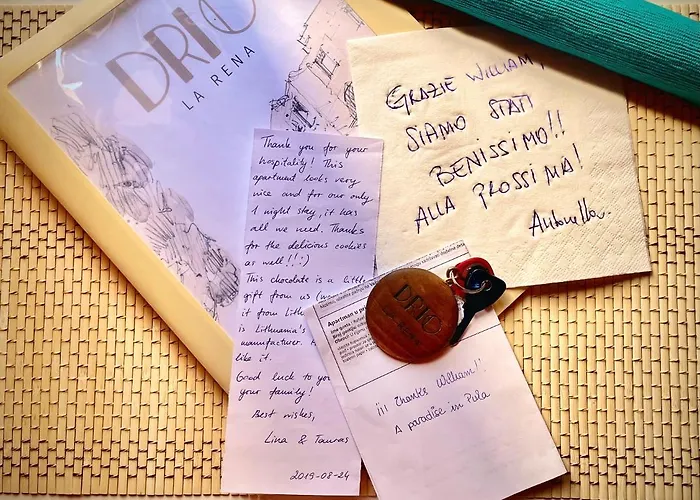 DRIO
LA RENA
Thank you for your
hospitality! This
apartment looks very
nice and for our only
1 night stay, it has
all we need. Thanks
for the delicious cookies
as well!! :)
This chocolate is a little
gift from us
it from
is Lithuania's
manufacturer.
like it.
Good luck to you
your family!
Best wishes,
Lina & Tauras
2019-08-24
GRAZIE WILLIAM,
SIAMO STATI
BENISSIMO!!
ALLA PROSSIMA!
Antonella.
DRIO
Apartman u
¡¡¡ Thanks William!!
A paradise in Pula